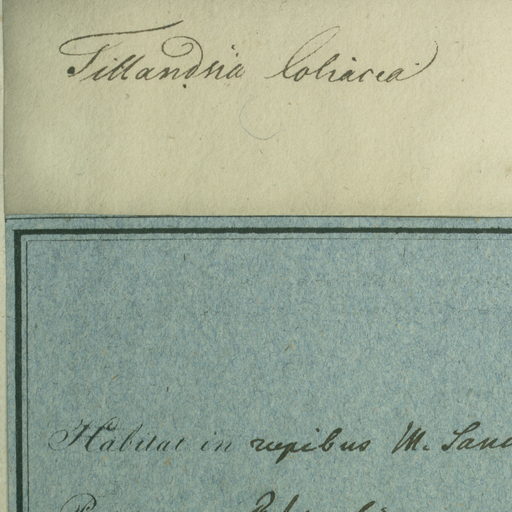 Tillandsia loliacea
Habitat in rupibus M. Sanc